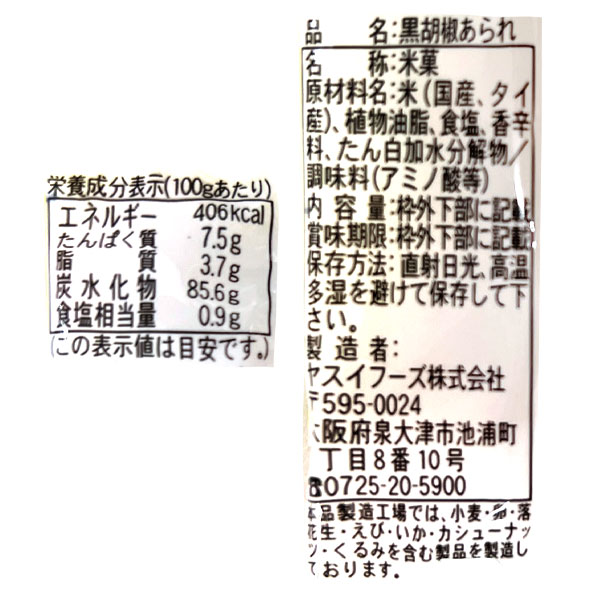 栄養成分表示(100gあたり)
エネルギー 406kcal
たんぱく質 7.5g
脂質 3.7g
炭水化物 85.6g
食塩相当量 0.9g
(この表示値は目安です。)
品名:黒胡椒あられ
名称:米菓
原材料名:米(国産、タイ
産)、植物油脂、食塩、香辛
料、たん白加水分解物/
調味料(アミノ酸等)
内容量:枠外下部に記載
賞味期限:枠外下部に記載
保存方法:直射日光、高温
多湿を避けて保存して下
さい。
製造者:
ヤスイフーズ株式会社
〒595-0024
大阪府泉大津市池浦町
丁目8番10号
☎0725-20-5900
本品製造工場では、小麦・卵・落
花生・えび・いか・カシューナッ
ツ・くるみを含む製品を製造し
ております。